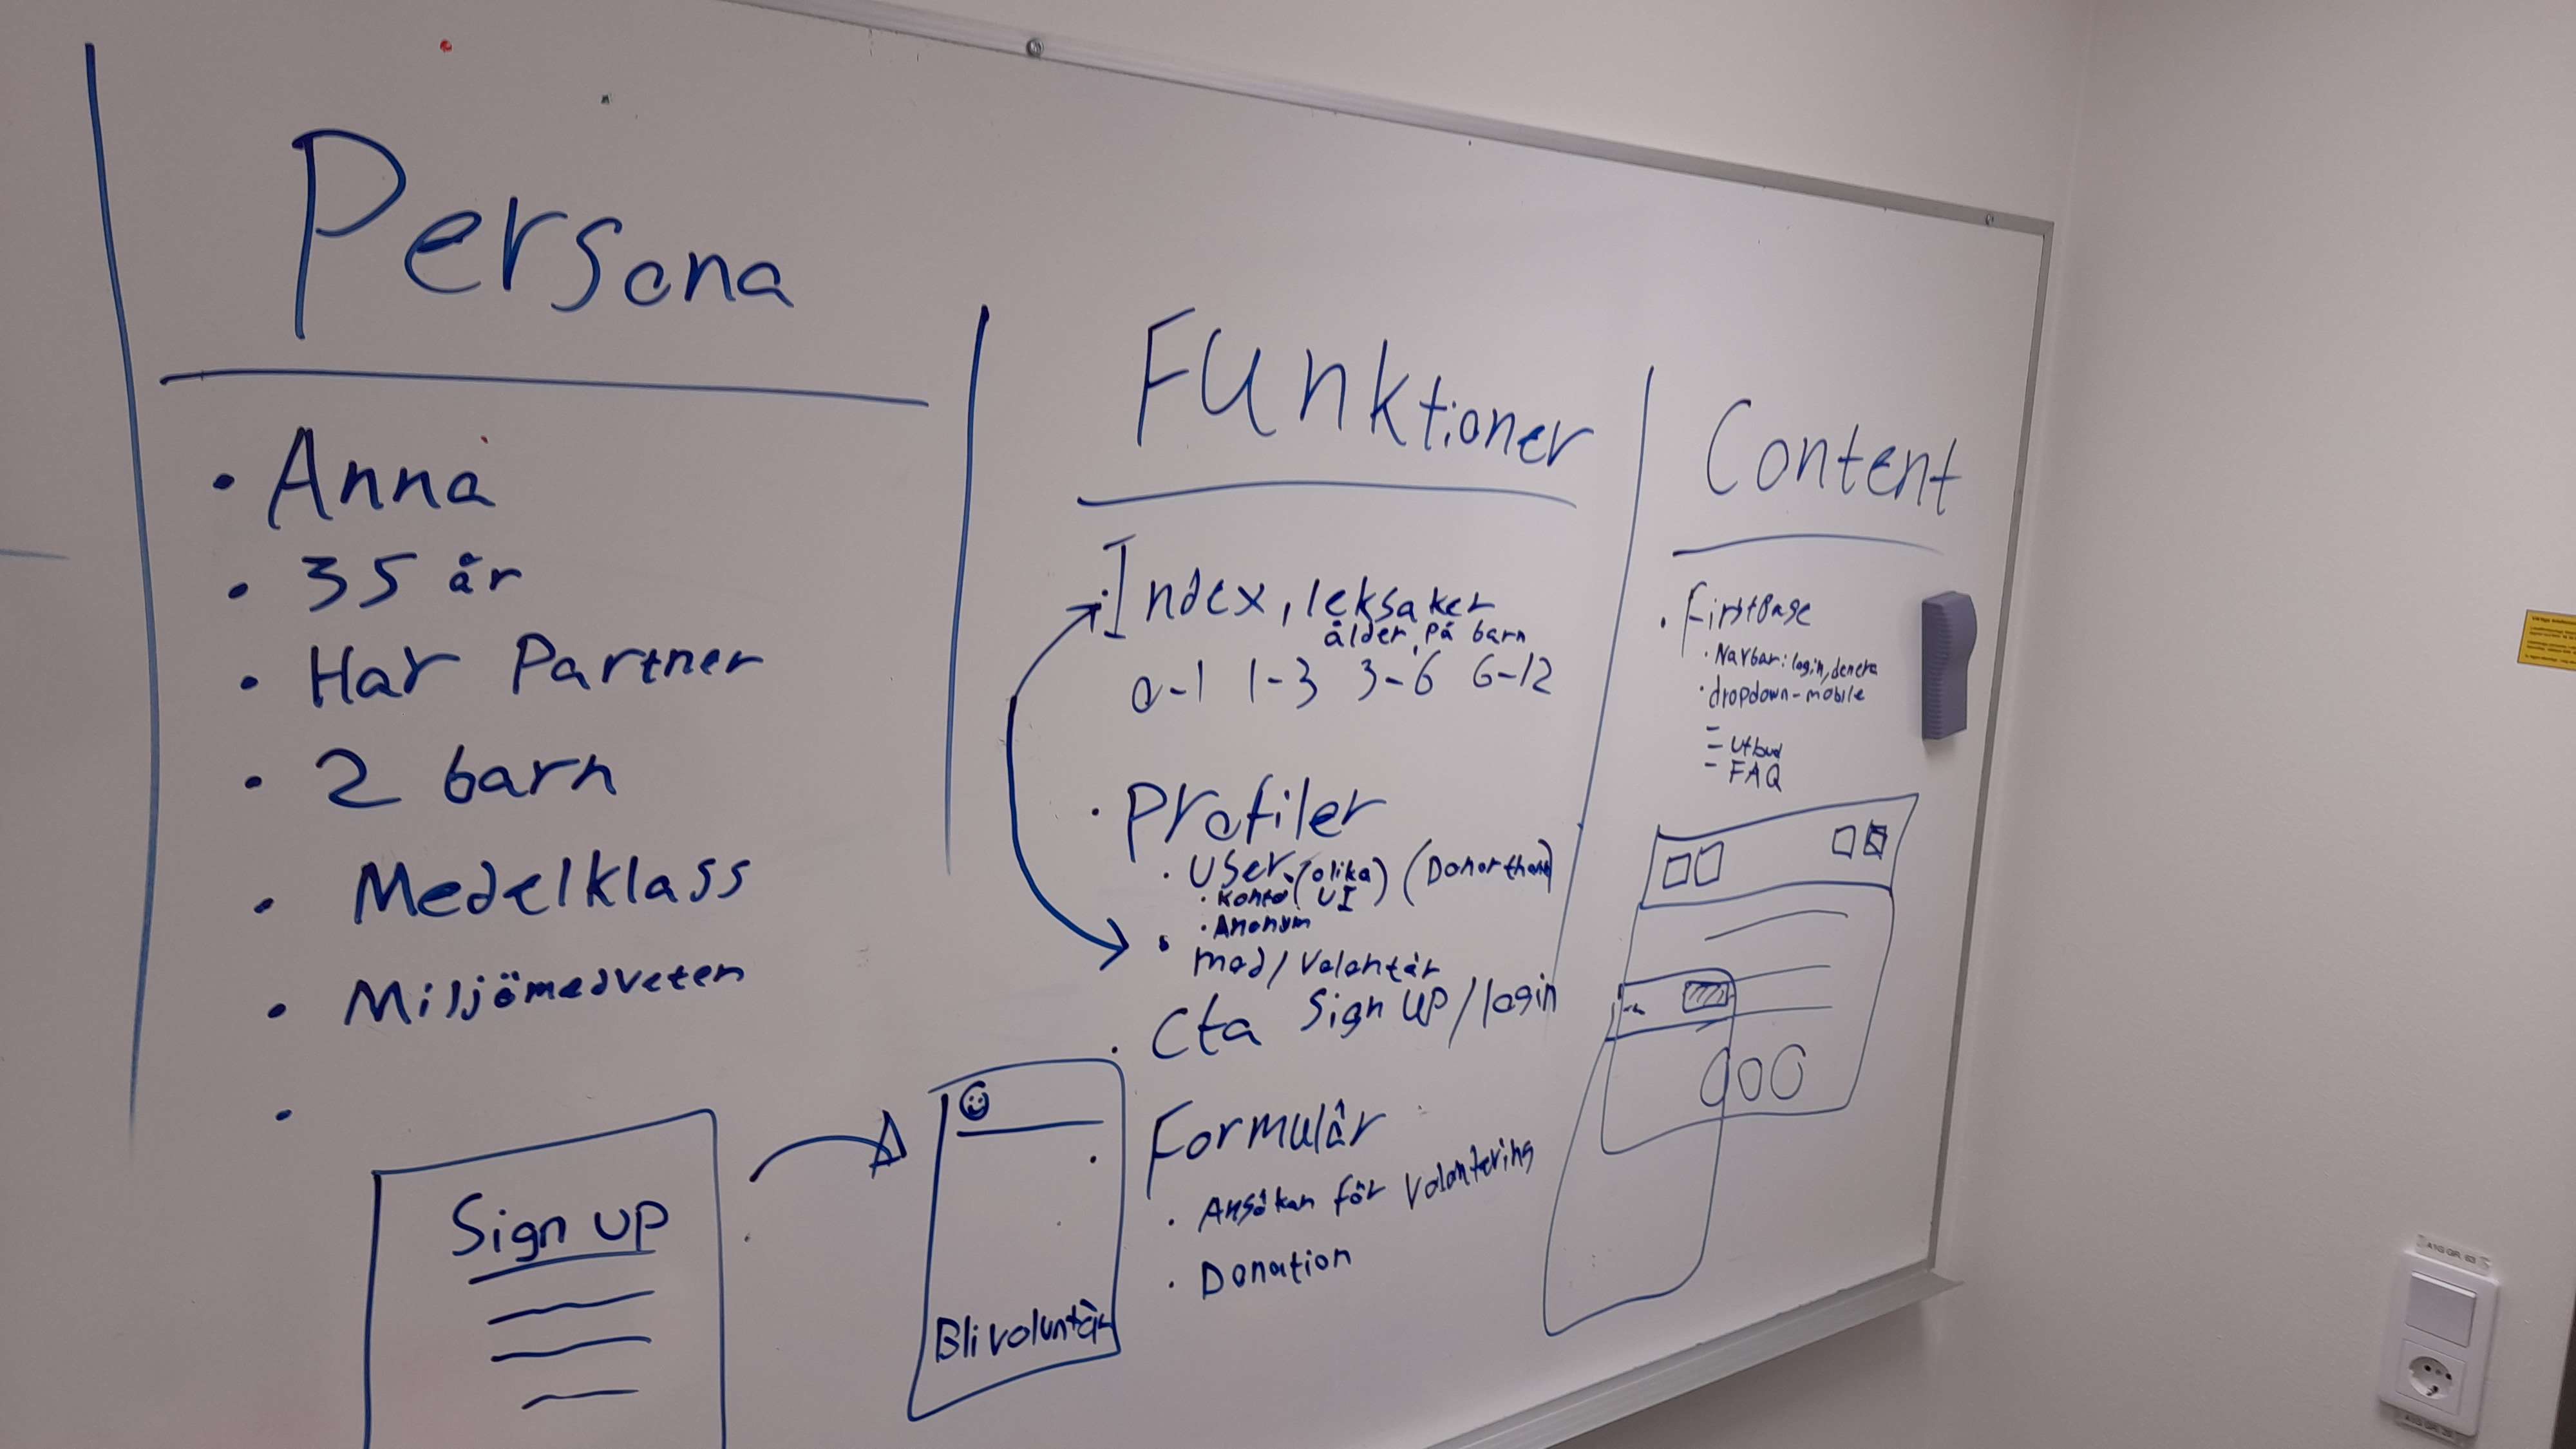 Persona
• Anna
• 35 år
• Har Partner
• 2 barn
• Medelklass
• Miljömedveten
•
Sign up
Bli voluntär
Funktioner
• Index, leksaker
ålder på barn
0-1 1-3 3-6 6-12
• Profiler
• User (olika UI)
• konto
• Anonym
• mod/Volontär
• Cta Sign up/login
• Formulär
• Ansökan för Volontering
• Donation
Content
• FirstPage
• Navbar: login, donera
• dropdown-mobile
- Utbud
- FAQ